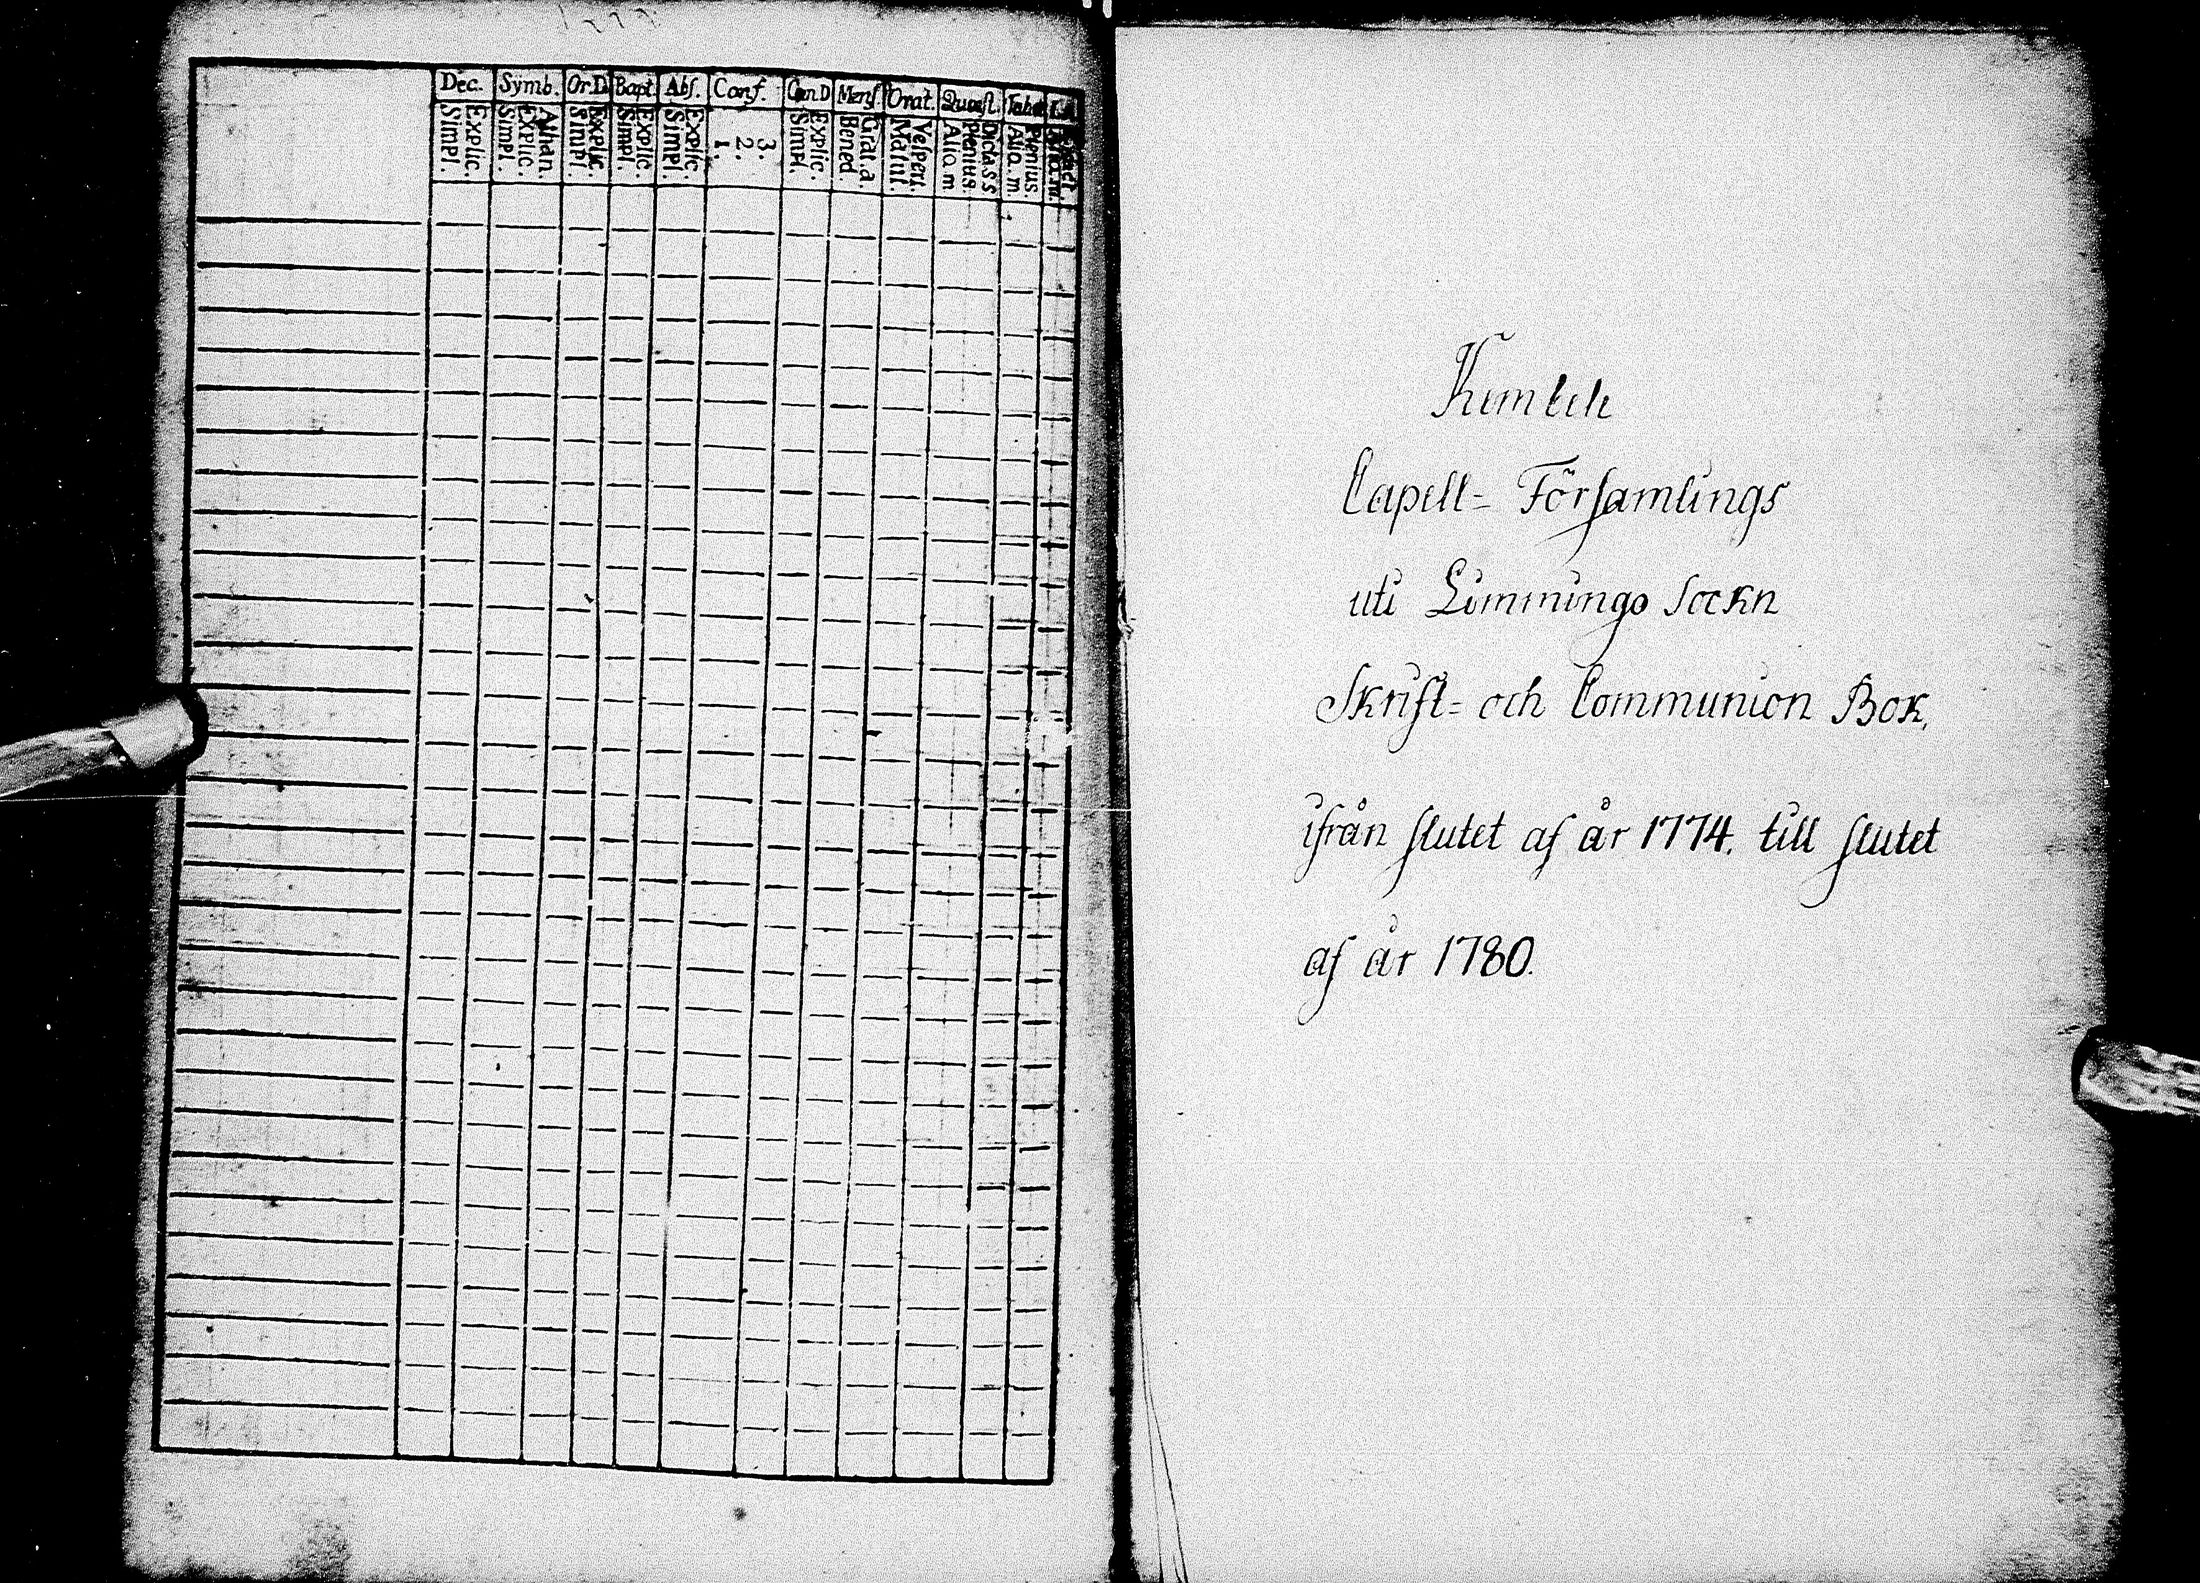 Dec. Symb. Or.D. Bapt. Abs. Conf. Cæn.D Mens. Orat. Quæst.
Simpl. Explic. Simpl. Explic. Athan. Simpl. Explic. Simpl. Explic. Simpl. Explic. 1. 2. 3. Simpl. Explic. Bened. Grat. a. Matut. Vespert. Aliq. m. Plenius. Dicta S.S. Aliq. m. Plenius.
Kembele
Capell= Församlings
uti Limmingo Sockn
Skrift= och Communion Bok,
ifrån slutet af år 1774. till slutet
af år 1780.